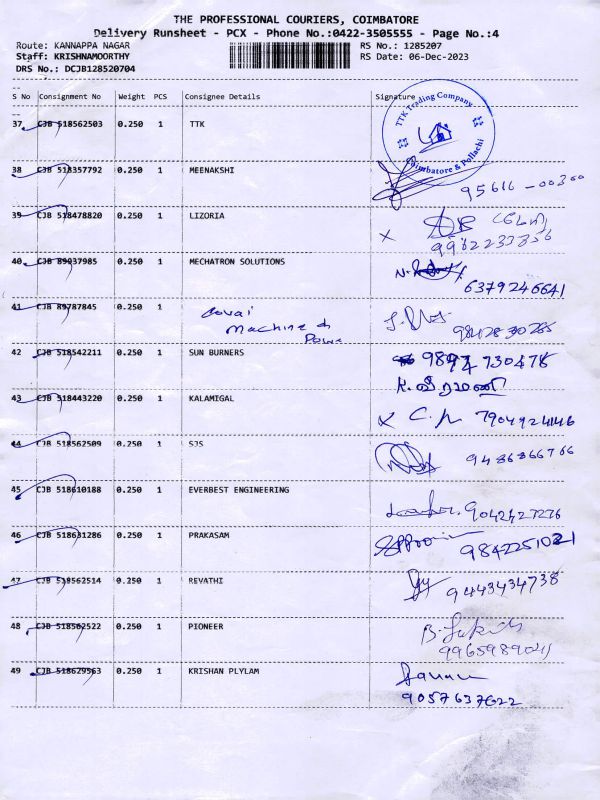 THE PROFESSIONAL COURIERS, COIMBATORE
Delivery Runsheet - PCX - Phone No.:0422-3505555 - Page No.:4
Route: KANNAPPA NAGAR RS No.: 1285207
Staff: KRISHNAMOORTHY RS Date: 06-Dec-2023
DRS No.: DCJB128520704
S No Consignment No Weight PCS Consignee Details Signature
TTK Trading Company
Coimbatore & Pollachi
37 CJB 518562503 0.250 1 TTK
38 CJB 518357792 0.250 1 MEENAKSHI 95611-00300
39 CJB 518478820 0.250 1 LIZORIA
9962233356
40 CJB 89037985 0.250 1 MECHATRON SOLUTIONS
6379246641
41 CJB 89787845 0.250 1 Covai
Machine & 9842830285
42 CJB 518542211 0.250 1 SUN BURNERS 9894 730478
K. வீரமணி
43 CJB 518443220 0.250 1 KALAMIGAL x 7904924146
44 CJB 518562509 0.250 1 SJS 9486866766
45 CJB 518610188 0.250 1 EVERBEST ENGINEERING 9042427276
46 CJB 518631286 0.250 1 PRAKASAM 9842251021
47 CJB 518562514 0.250 1 REVATHI 9443434738
48 CJB 518562522 0.250 1 PIONEER
9965989041
49 CJB 518629563 0.250 1 KRISHAN PLYLAM
9057637622